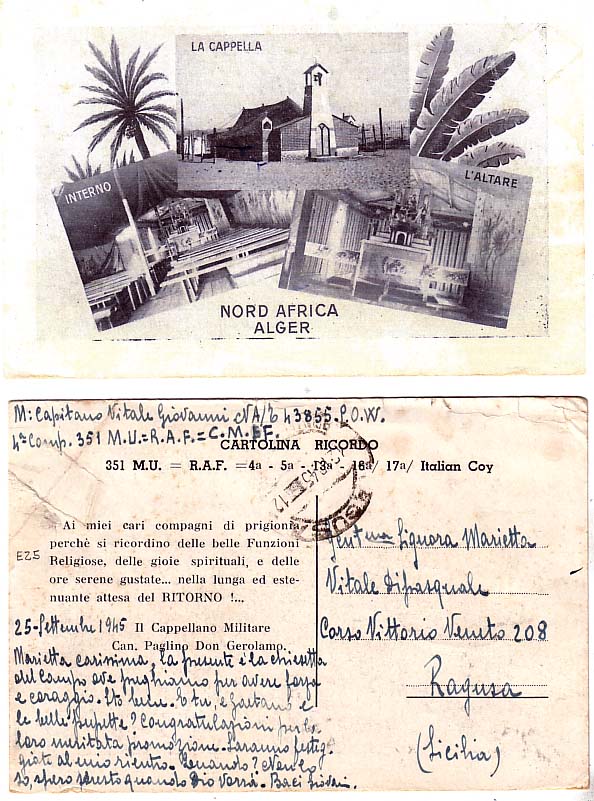 LA CAPPELLA
INTERNO
L'ALTARE
NORD AFRICA
ALGER
M: Capitano Vitale Giovanni NA/E 43855. P.O.W.
4ª Comp. 351 M.U.=R.A.F.=C.M.F.
CARTOLINA RICORDO
351 M.U. = R.A.F. =4a - 5a - 13a - 16a/ 17a/ Italian Coy
Ai miei cari compagni di prigionia
perchè si ricordino delle belle Funzioni
Religiose, delle gioie spirituali, e delle
ore serene gustate... nella lunga ed este-
nuante attesa del RITORNO !...
E25
25-Settembre 1945 Il Cappellano Militare
Can. Paglino Don Gerolamo.
Marietta carissima, la presente è la chiesetta
del campo ove preghiamo per avere forza
e coraggio. Sto bene. E tu, e Gaetano e
le belle pupette? Congratulazioni per la
loro meritata promozione. Saranno festeg-
giate al mio rientro. Quando? Non lo
so, spero presto quando Dio vorrà. Baci
Gent.ma Signora Marietta
Vitale Dipasquale
Corso Vittorio Veneto 208
Ragusa
(Sicilia)